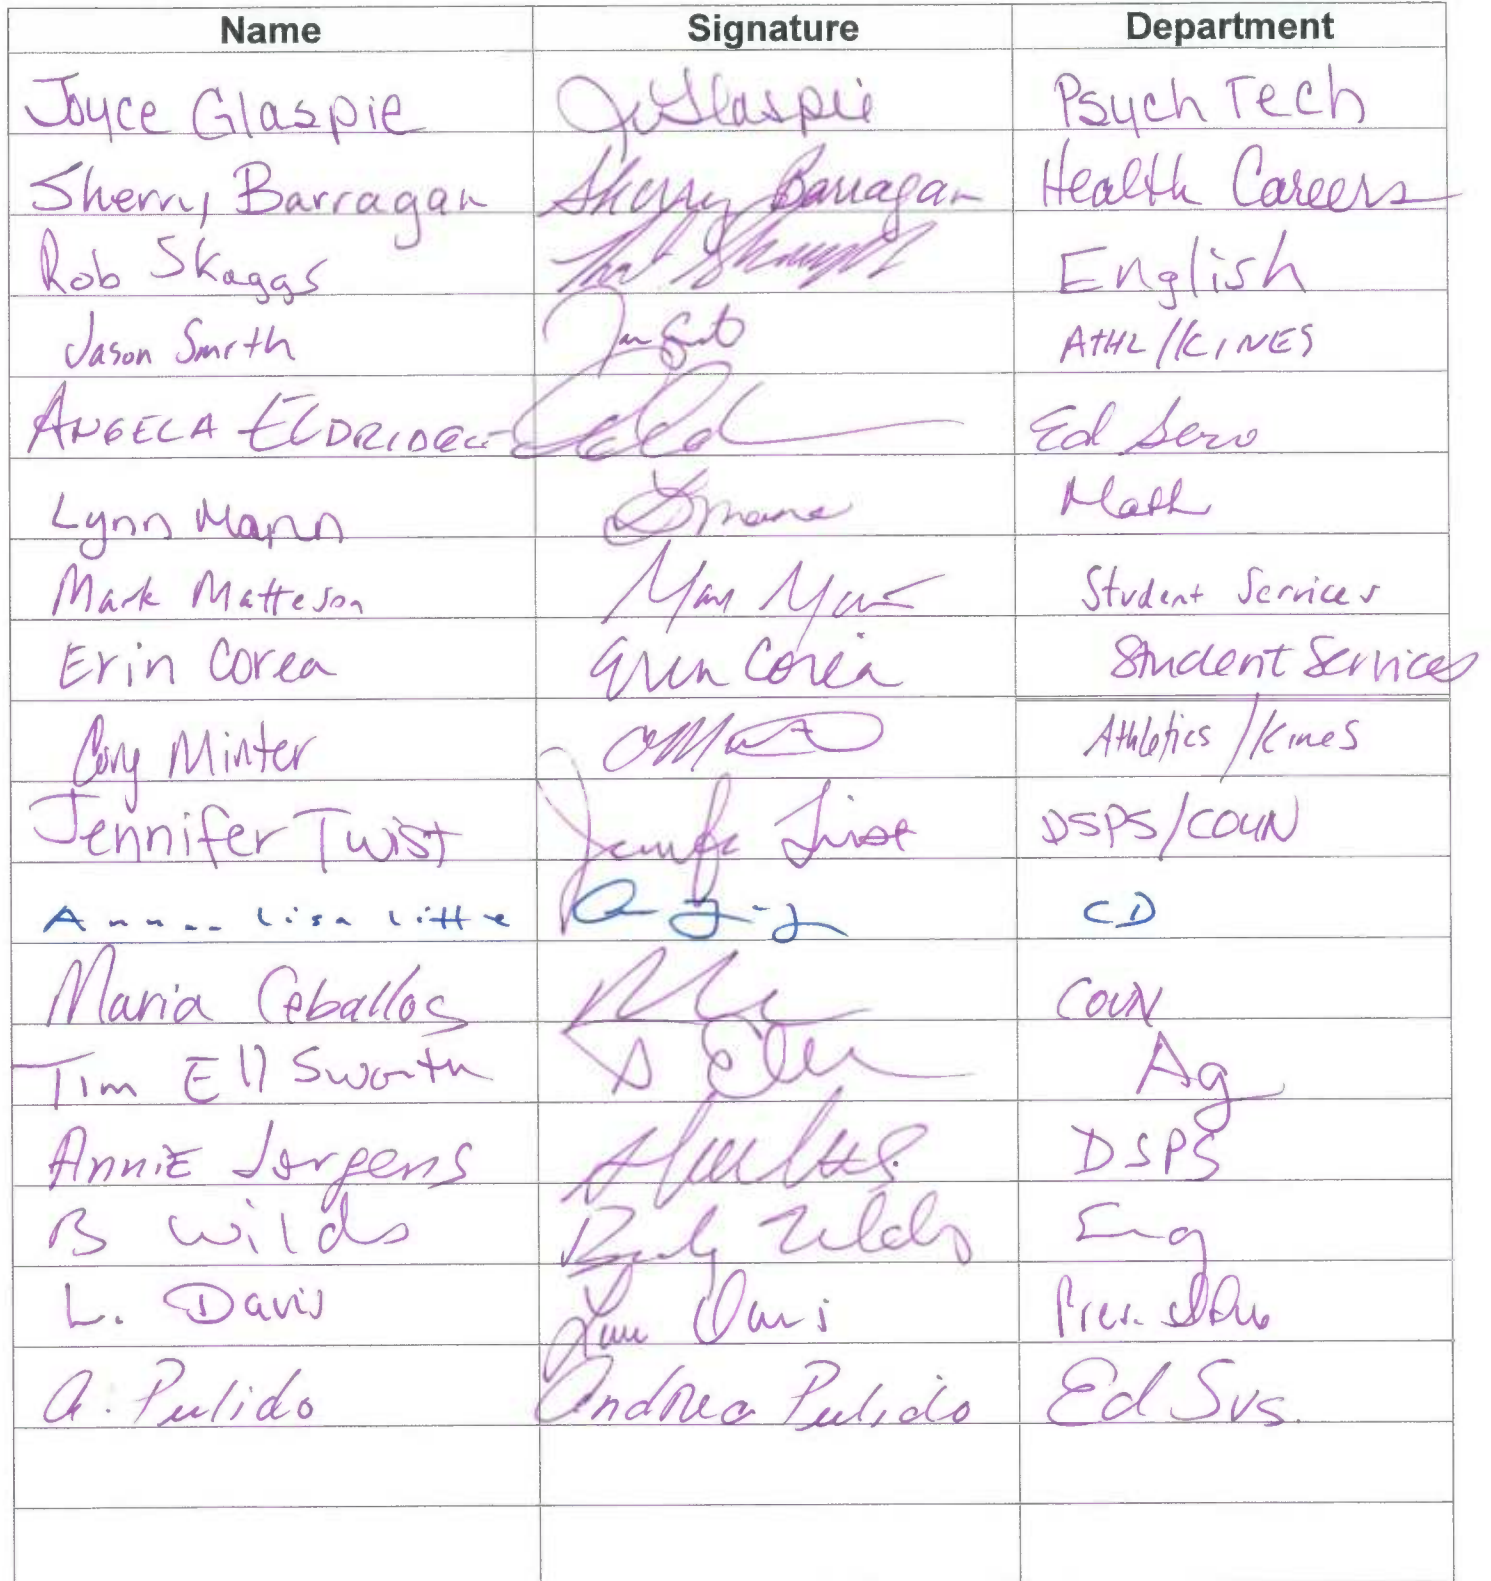 Name Signature Department
Joyce Glaspie J Glaspie Psych Tech
Sherry Barragan Sherry Barragan Health Careers
Rob Skaggs English
Jason Smith ATHL/KINES
ANGELA ELDRIDGE Ed Serv
Lynn Mann LMann Math
Mark Matteson Student Services
Erin Corea Erin Corea Student Services
Cory Minter Athletics/Kines
Jennifer Twist Jennifer Twist DSPS/COUN
Lisa Little CD
Maria Ceballos COUN
Tim Ellsworth Ag
Annie Jorgens DSPS
B Wilds Wilds Eng
L. Davis Davis Pres.
A. Pulido Andrea Pulido Ed Svs.